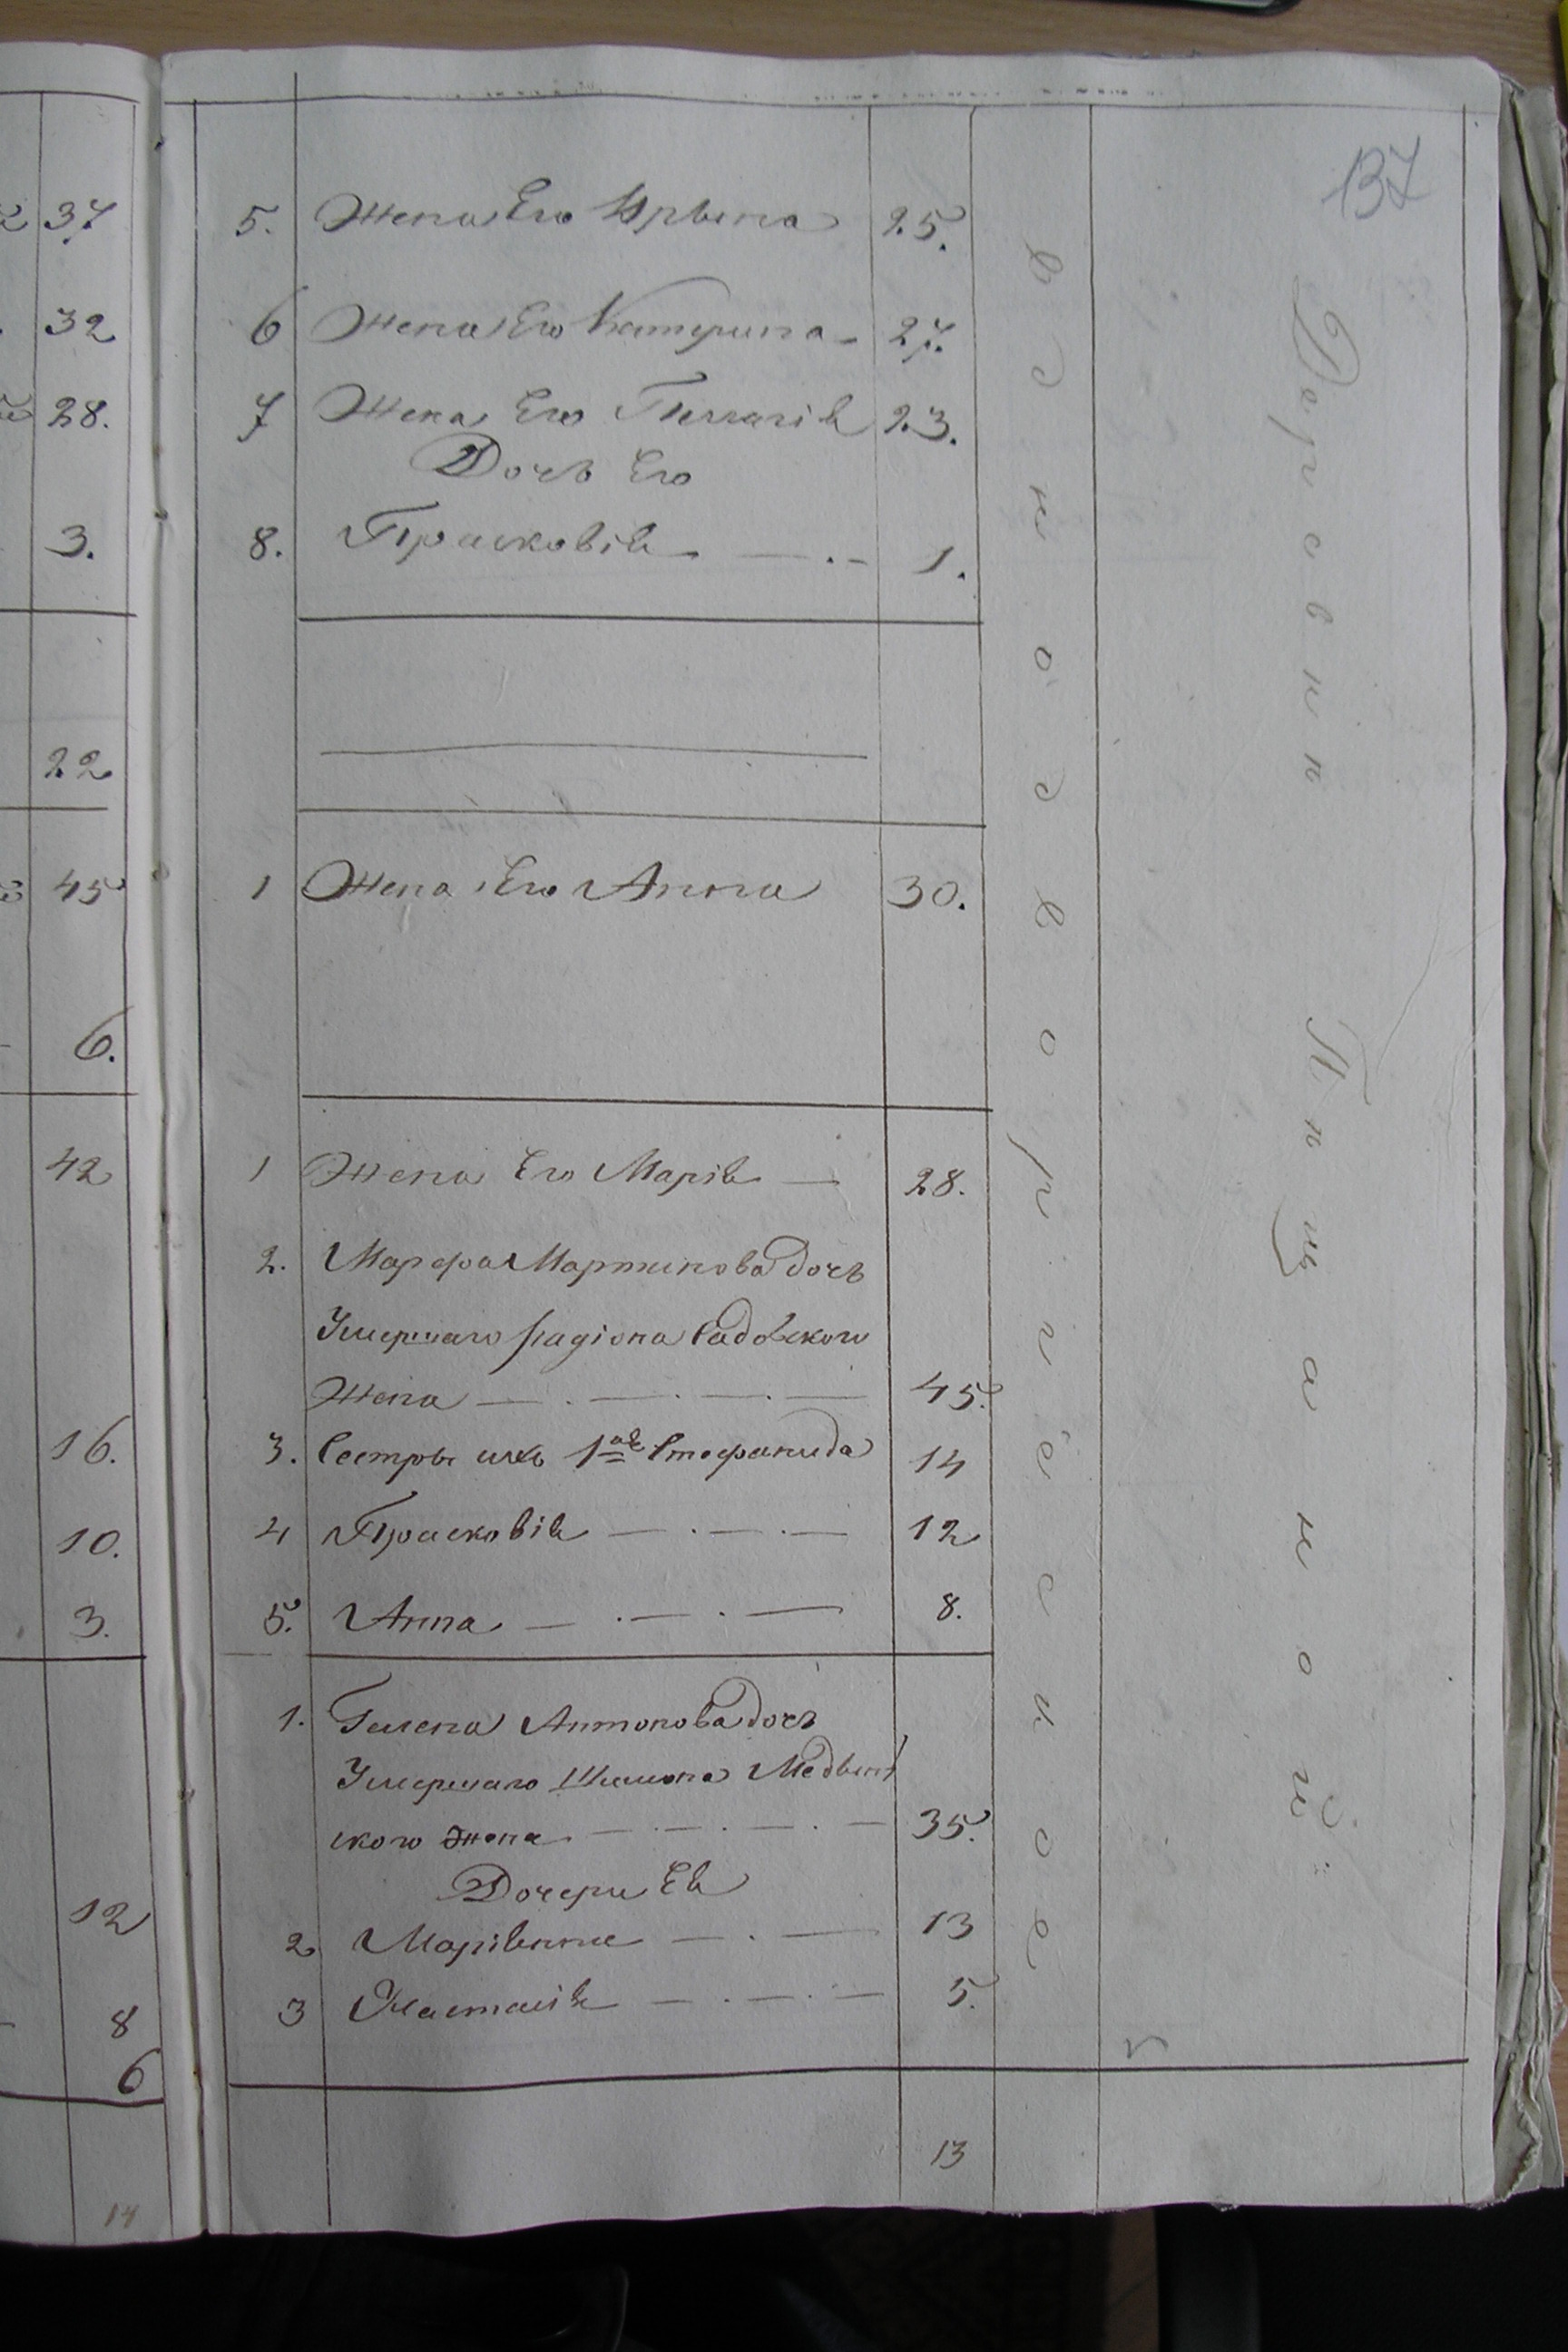 137
37
32
28.
3.
22
45
6.
42
16.
10.
3.
12
8
6
14
5. Жена Его Ирына 25.
6 Жена Его Катерина 27.
7 Жена Его Пелагія 23.
Дочь Его
8. Прасковія 1.
1 Жена Его Анна 30.
1 Жена Его Марія 28.
2. Марфа Мартинова дочь
Умершаго Радіона Садовского
Жена 45.
3. Сестры ихъ 1ая Стефанида 14
4 Прасковія 12
5. Анна 8.
1. Гелена Антонова дочь
Умершаго Шимона Медвин
ского Жена 35.
Дочери Ея
2 Маріанна 13
3 Настасія 5.
13
однодворческое
Деревни